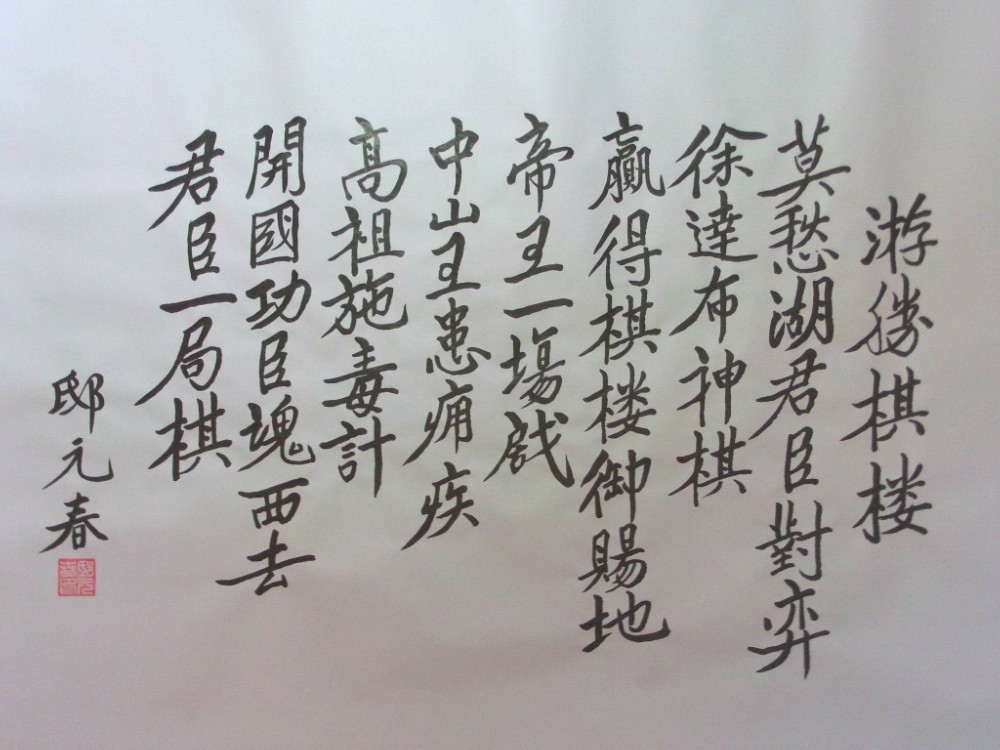 游勝棋楼
莫愁湖君臣對弈
徐達布神棋
赢得棋楼御賜地
帝王一場戯
中山王患痈疾
高祖施毒計
開國功臣魂西去
君臣一局棋
邸元春